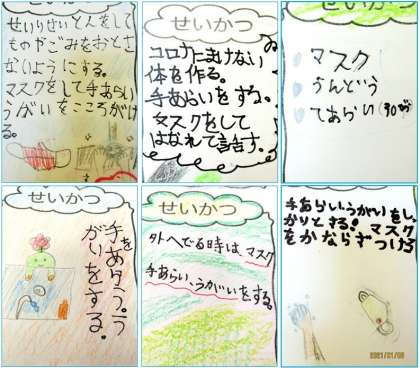 せいかつ
せいりせいとんをして
ものやごみをおとさ
ないようにする。
マスクをして手あらい
うがいをこころがけ
る。
せいかつ
コロナにまけない
体を作る。
手あらいをする。
マスクをして
はなれて話す。
せいかつ
マスク
うんどう
てあらい(30
せいかつ
手をあらう。う
がいをする。
せいかつ
外へでる時は、マスク
手あらい、うがいをする。
手あらいうがいをしっ
かりとする!マスク
をかならずつける
2021/01/08